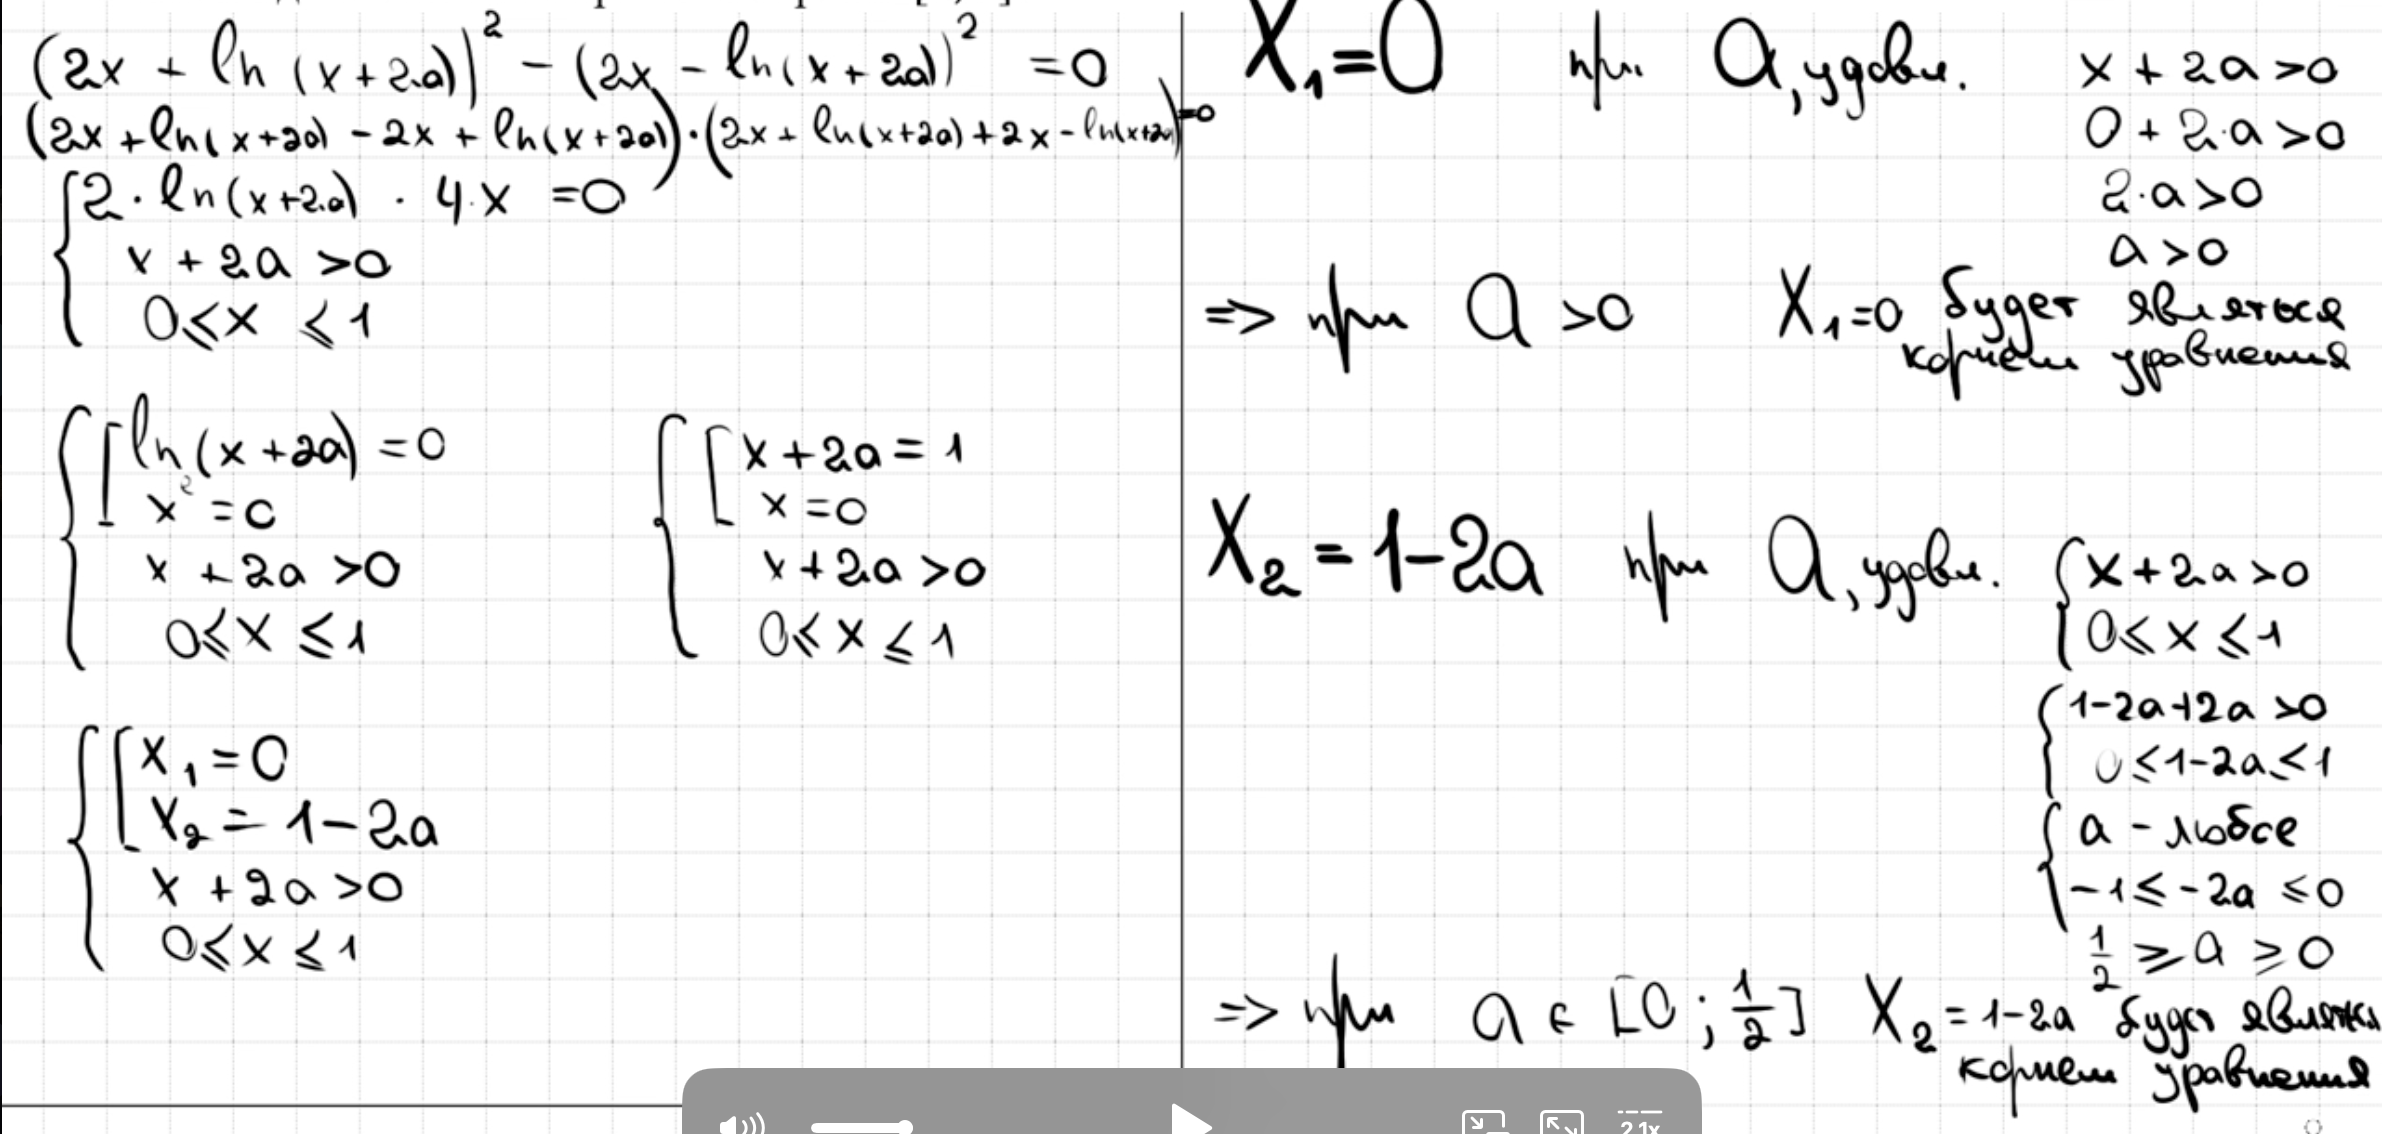 (2x + ln (x+2a))² − (2x − ln(x+2a))² = 0
(2x + ln(x+2a) − 2x + ln(x+2a))·(2x + ln(x+2a) + 2x − ln(x+2a)) = 0
2·ln(x+2a) · 4·x = 0
x + 2a > 0
0 ≤ x ≤ 1
ln(x+2a) = 0
x = 0
x + 2a > 0
0 ≤ x ≤ 1
x + 2a = 1
x = 0
x + 2a > 0
0 ≤ x ≤ 1
x₁ = 0
x₂ = 1 − 2a
x + 2a > 0
0 ≤ x ≤ 1
X₁ = 0 при a, удовл.
x + 2a > 0
0 + 2·a > 0
2·a > 0
a > 0
=> при a > 0 X₁ = 0 будет являться
корнем уравнения
X₂ = 1−2a при a, удовл.
x + 2a > 0
0 ≤ x ≤ 1
1−2a+2a > 0
0 ≤ 1−2a ≤ 1
a − любое
−1 ≤ −2a ≤ 0
1/2 ≥ a ≥ 0
=> при a ∈ [0; 1/2] X₂ = 1−2a будет являться
корнем уравнения
2.1x